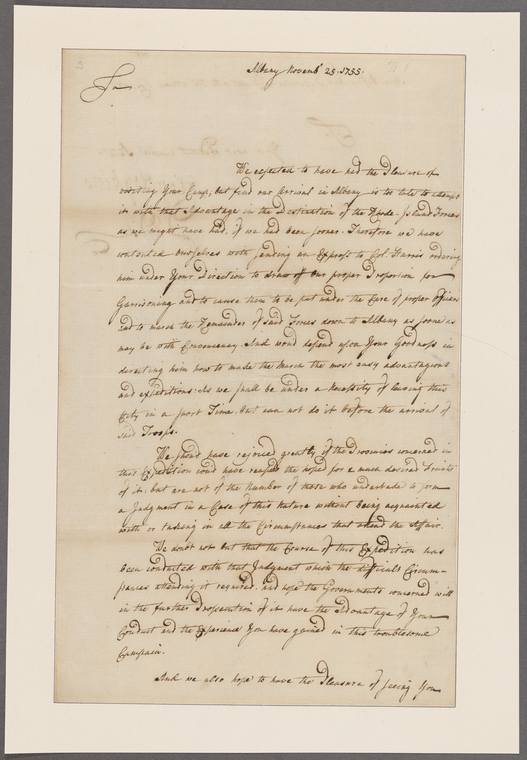 Albany Novembr 25. 1755.
Sr
We expected to have had the Pleasure of
visiting Your Camp, but find our Arrival in Albany is too late to
it with that Advantage in the Destination of the Rhode-Island Forces
as we might have had, if we had been sooner. Therefore we have
contented ourselves with sending an Express to Col. Harris ordering
him under Your Direction to draw off our proper Proportion for
Garrisoning and to cause them to be put under the Care of proper Officers
and to march the Remainder of said Forces down to Albany as soone as
may be with Conveniency. And woud depend upon Your Goodness in
directing him how to make the March the most easy advantageous
and expeditious: As we shall be under a Necessity of leaving this
City in a short Time but can not do it before the arrival of
said Troops.
We shoud have rejoiced greatly if the Provinces concerned in
this Expedition coud have reaped the hoped for & much desired Fruits
of it; but are not of the Number of those who undertake to form
a Judgment in a Case of this Nature without being acquainted
with or taking in all the Circumstances that attend the Affair.
We doubt not but that the Course of this Expedition has
been conducted with that Judgment which the difficult Circum-
stances attending it required, and hope the Governments concerned will
in the further Prosecution of it have the Advantage of Your
Conduct and the Experience You have gained in this troublesome
Campain.
And we also hope to have the Pleasure of seeing You